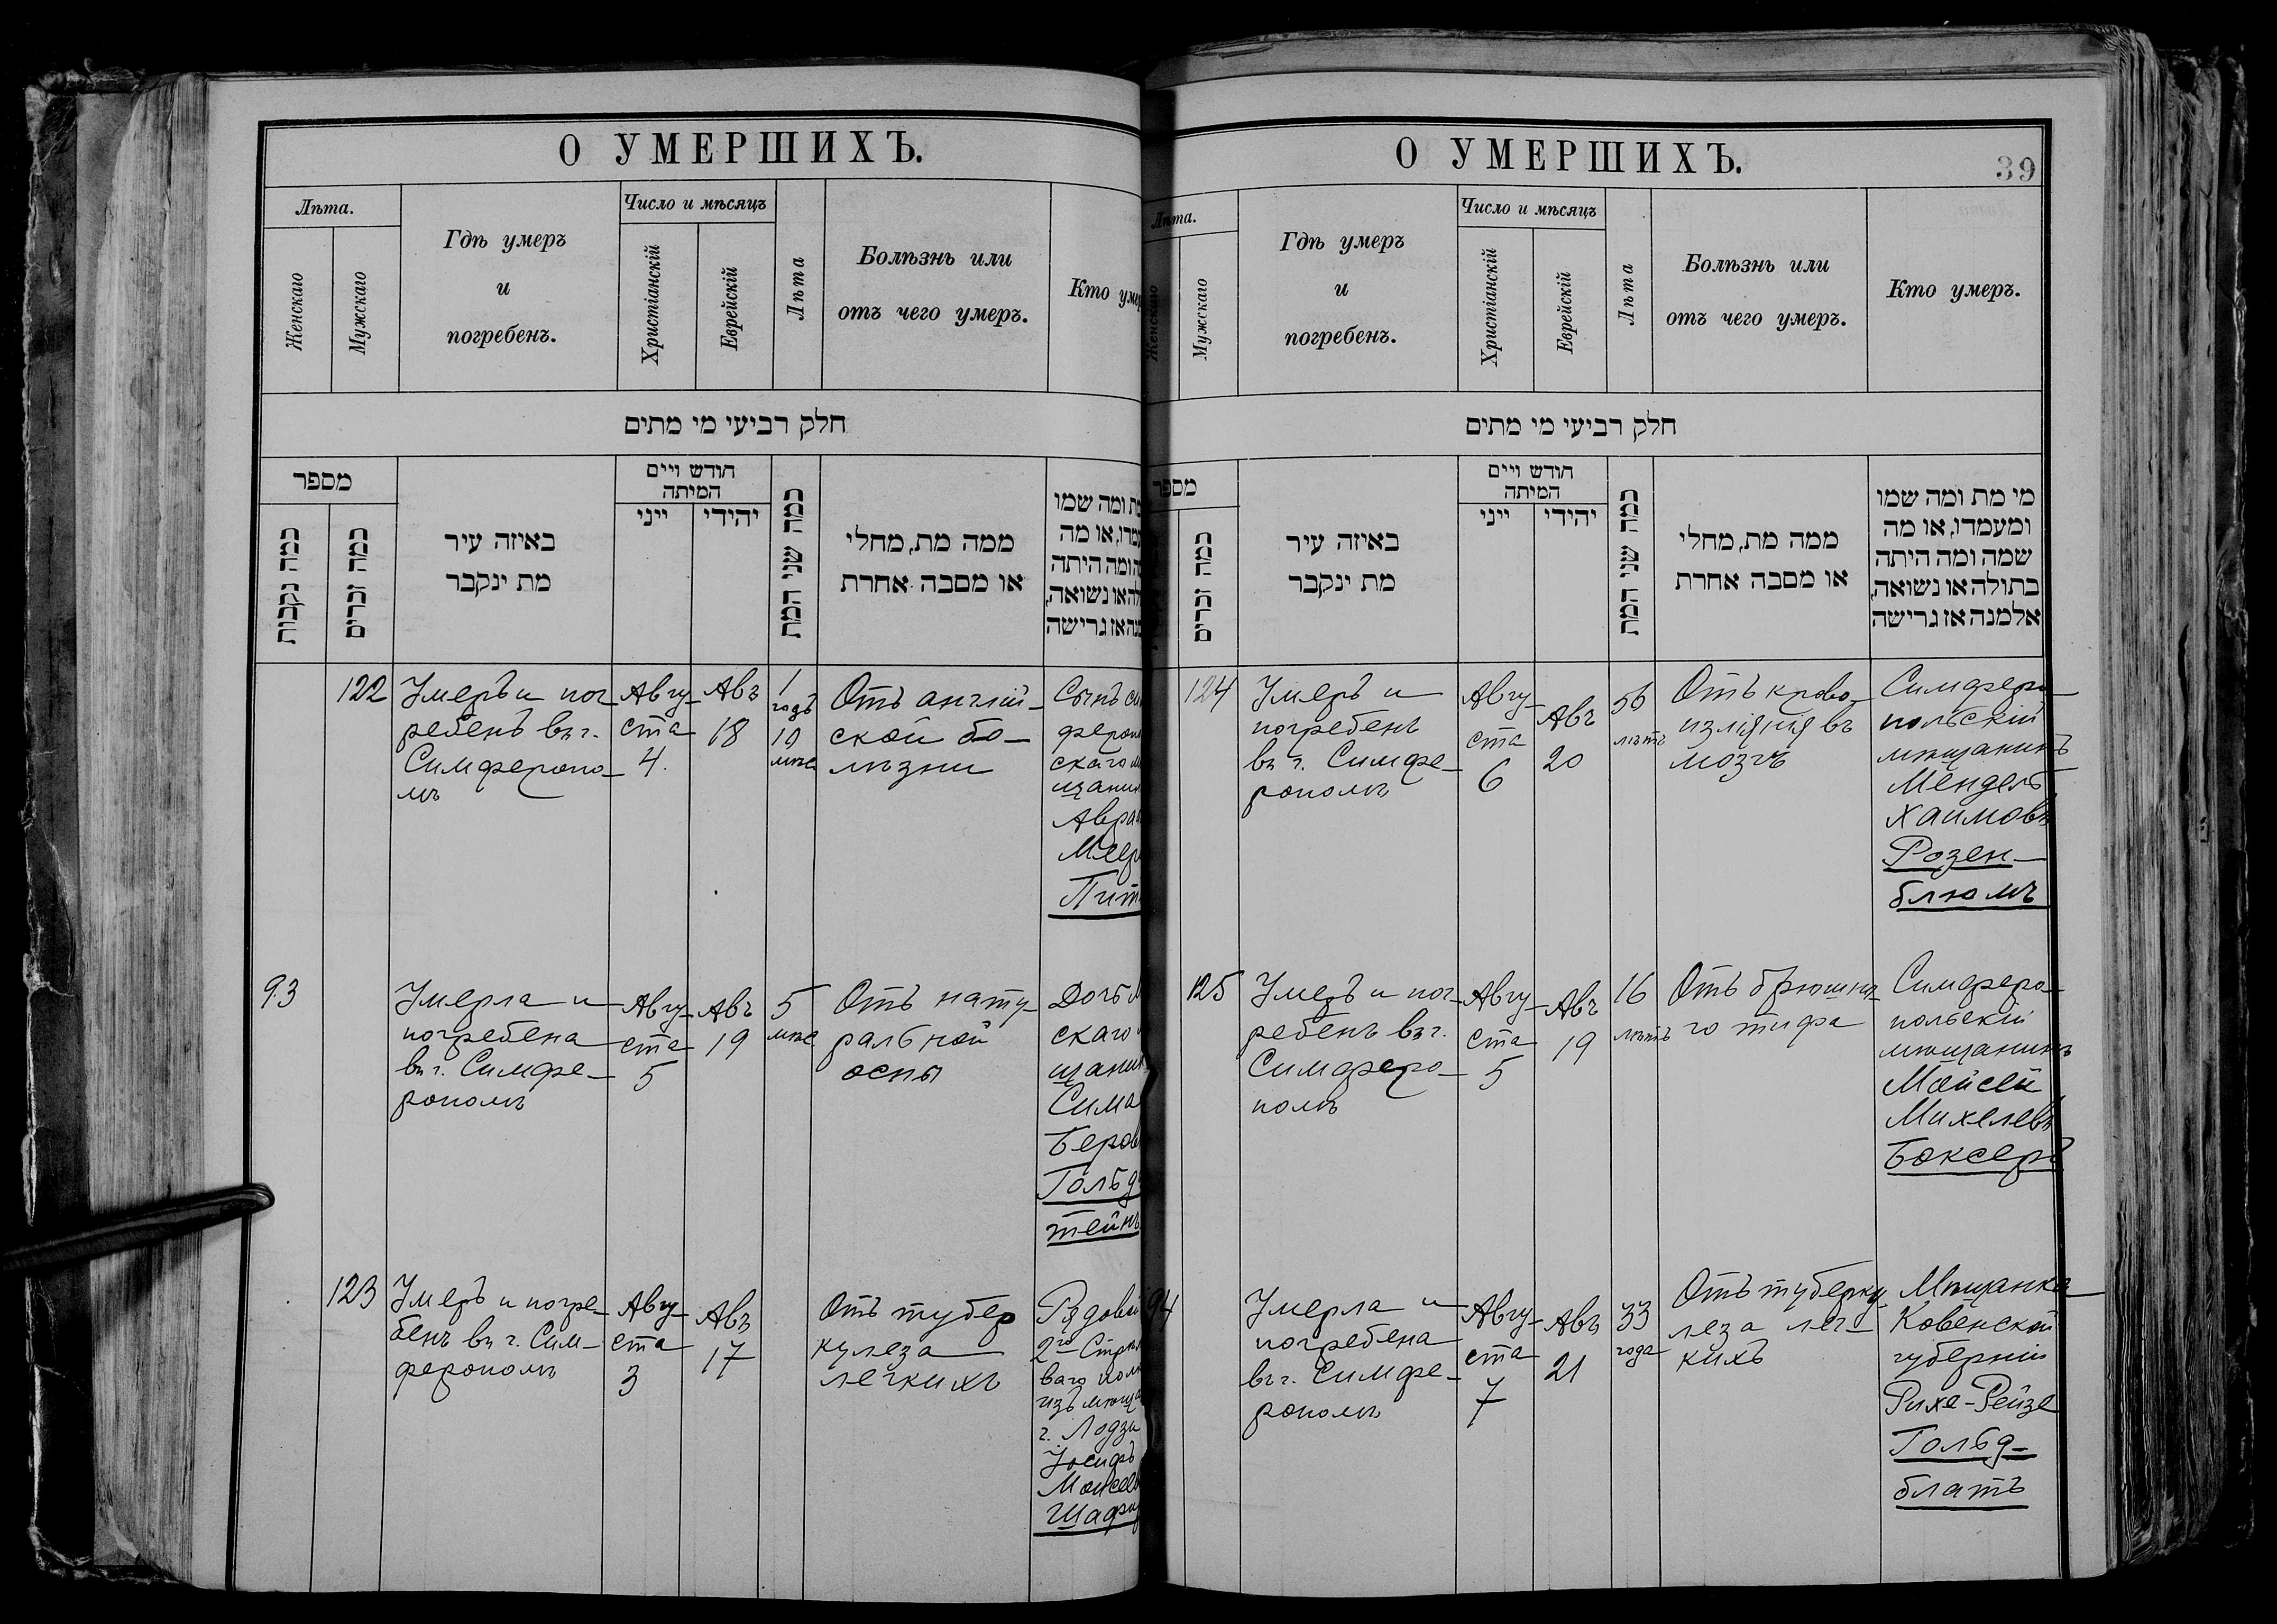 О УМЕРШИХЪ.
Лѣта.
Женскаго
Мужскаго
Гдѣ умеръ
и
погребенъ.
Число и мѣсяцъ
Христіанскій
Еврейскій
Лѣта
Болѣзнь или
отъ чего умеръ.
Кто умер
חלק רביעי מי מתים
מספר
כמה נקבות
כמה זכרים
באיזה עיר
מת ינקבר
חודש ויים
המיתה
ייני
יהידי
כמה שני המת
ממה מת, מחלי
או מסבה אחרת
מת ומה שמו
או מה
ומה היתה
או נשואה,
אז גרישה
122
Умеръ и пог
ребенъ въ г.
Симферопо-
лѣ
Авгу-
ста
4.
Авъ
18
1
годъ
10
мѣс
Отъ англій-
ской бо-
лѣзни
Сынъ си
фероп
скаго м
щанин
Авра
Меер
Пит
93
Умерла и
погребена
въ г. Симфе-
рополѣ
Авгу-
ста
5
Авъ
19
5
мѣс
Отъ нату-
ральной
оспы
Дочь
скаго
щанин
Сима
Беров
Гольд
тейнъ
123
Умеръ и погре-
бенъ въ г. Сим-
ферополѣ
Авгу-
ста
3
Авъ
17
Отъ тубер
кулеза
легкихъ
Рядовой
2го Стрѣл
ваго пол
изъ мѣща
г. Лодзи
Іосифъ
Моисее
Шафи
О УМЕРШИХЪ.
39
Лѣта.
Женскаго
Мужскаго
Гдѣ умеръ
и
погребенъ.
Число и мѣсяцъ
Христіанскій
Еврейскій
Лѣта
Болѣзнь или
отъ чего умеръ.
Кто умеръ.
חלק רביעי מי מתים
מספר
כמה זכרים
באיזה עיר
מת ינקבר
חודש ויים
המיתה
ייני
יהידי
כמה שני המת
ממה מת, מחלי
או מסבה אחרת
מי מת ומה שמו
ומעמדו, או מה
שמה ומה היתה
בתולה או נשואה,
אלמנה אז גרישה
124
Умеръ и
погребенъ
въ г. Симфе-
рополѣ
Авгу-
ста
6
Авъ
20
56
лѣтъ
Отъ крово-
изліянія въ
мозгъ
Симферо-
польскій
мѣщанинъ
Мендель
Хаимовъ
Розен-
блюмъ
125
Умеръ и пог-
ребенъ въ г.
Симферо-
полѣ
Авгу-
ста
5
Авъ
19
16
лѣтъ
Отъ брюшна-
го тифа
Симферо-
польскій
мѣщанинъ
Мойсей
Михелевъ
Боксеръ
94
Умерла и
погребена
въ г. Симфе-
рополѣ
Авгу-
ста
7
Авъ
21
33
года
Отъ туберку-
леза лег-
кихъ
Мѣщанка
Ковенской
губерніи
Рихе-Рейзе
Гольд-
блатъ